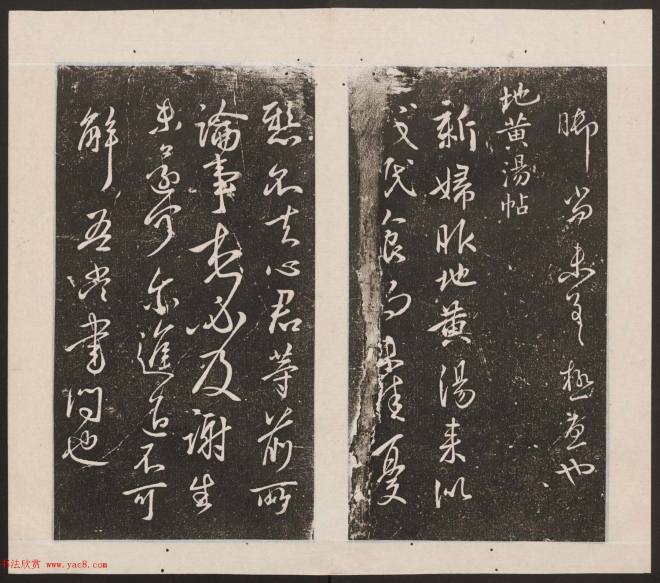 脚尚未差極憂也
地黄湯帖
新婦服地黄湯来似
減眠食尚未佳憂
懸不去心君等前所
論事想必及謝生
未還可尔進退不可
解吾當書問也
书法欣赏 www.yac8.com